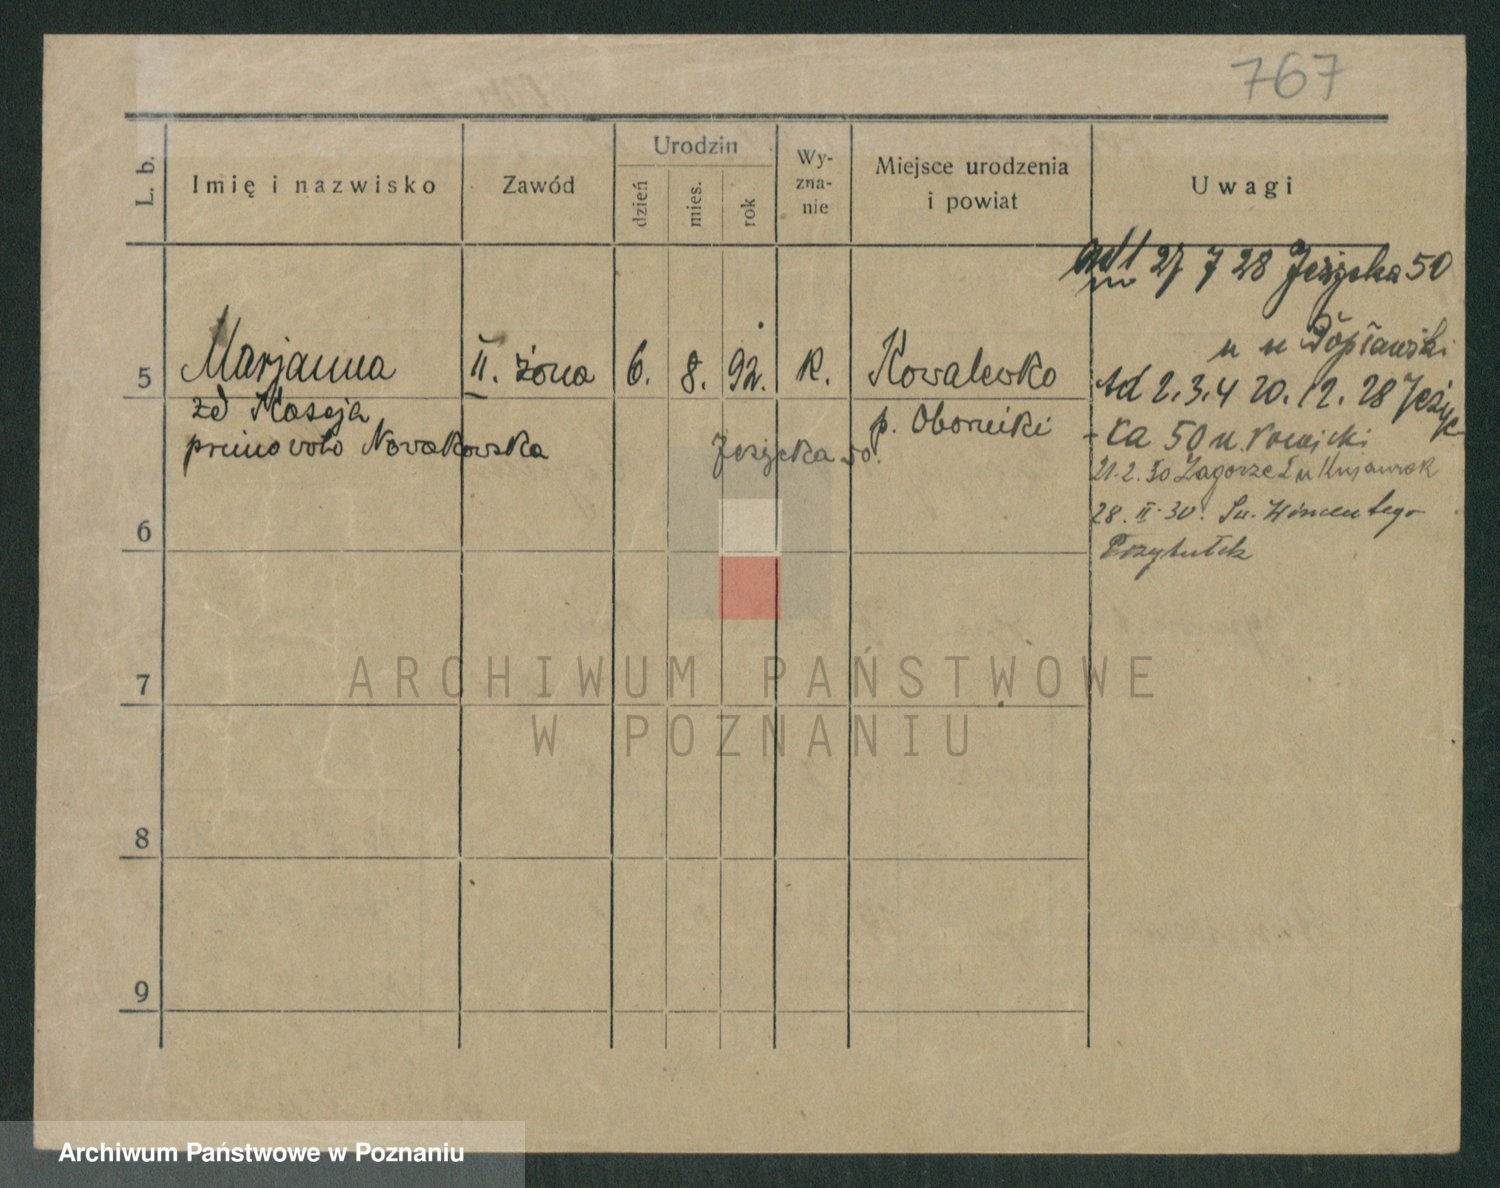 767
L. b.
Imię i nazwisko
Zawód
Urodzin
dzień
mies.
rok
Wy-
zna-
nie
Miejsce urodzenia
i powiat
Uwagi
27 7 28 Jeżycka 50
u Popławski
5 Marjanna II. żona 6. 8. 92. K. Kowalewko
zd
primo voto Nowakowska
p. Oborniki
Jeżycka 50.
ad 2.3.4 20.12.28 Jeżyc-
ka 50 u
21.2.30 Zagorze
28.II.30. Św. Wincentego
Przytułek
6
7
8
9
ARCHIWUM PAŃSTWOWE
W POZNANIU
Archiwum Państwowe w Poznaniu